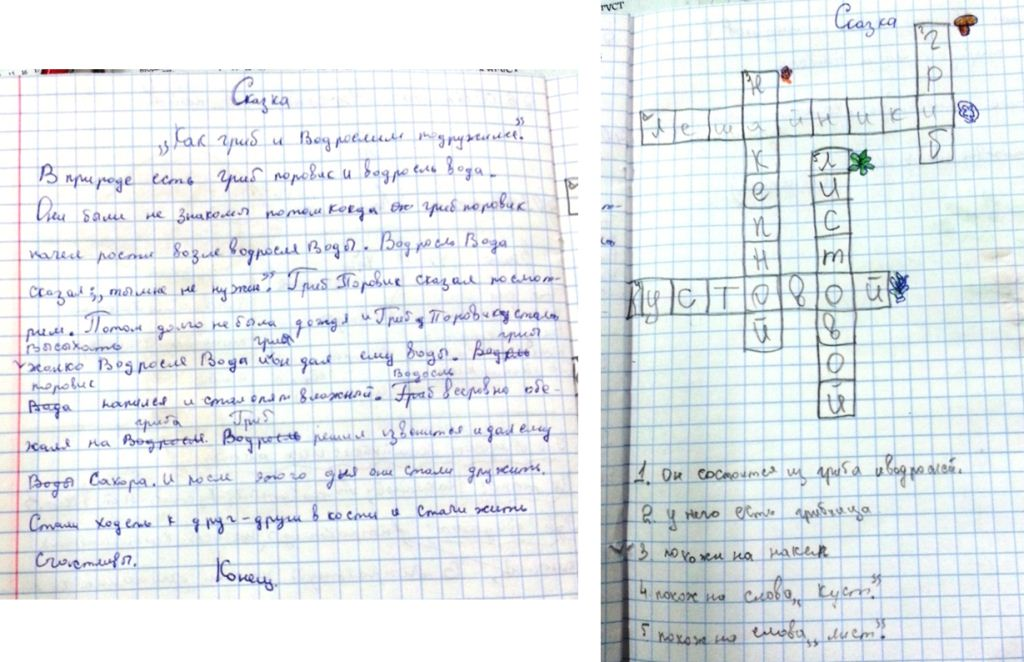 Сказка
„Как гриб и Водрослим подружились."
В природе есть гриб поровик и водросль вода.
Они были не знакомы потом когда гриб поровик
начел рости возле водросля Воды. Водросль Вода
сказал: „ты мне не нужен". Гриб Поровик сказал посмот-
рим. Потом долго не была дождя и Грибу Поровику стало
высыхать гриб грибы
жалко Водросле Вода и он дал ему воды. Водросль
поровис Водосль
Вода напился и стал опят вложной. Гриб всеровно обе-
гриба Гриб
жаля на Водросм. Водросль решил извенится и дал ему
Воды Сахора. И после этого дня они стали дружить.
Стали ходеть к друг-други в кости и стали жить
Счастливы.
Конец.
Сказка
1 гриб
2 лешайники
3 накепной
5 листовой
кустовой
1. Он состоится из гриба и водрожлей.
2 у него есть грибница
3 похожи на накеп
4 похож на слова „куст."
5 похож на слова „лист."